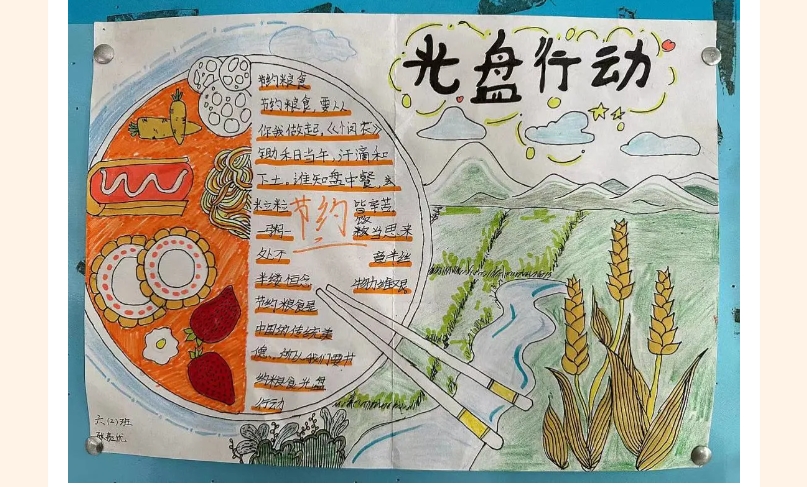 光盘行动
节约粮食
节约粮食，要从
你我做起，《悯农》
锄禾日当午，汗滴和
下土，谁知盘中餐，
米立粒 皆辛苦
节约
一粥一饭 当思来
处不
半缕恒念 物力维艰
节约粮食是
中国的传统美
德，所以我们要节
约粮食光盘
行动
六(2)班